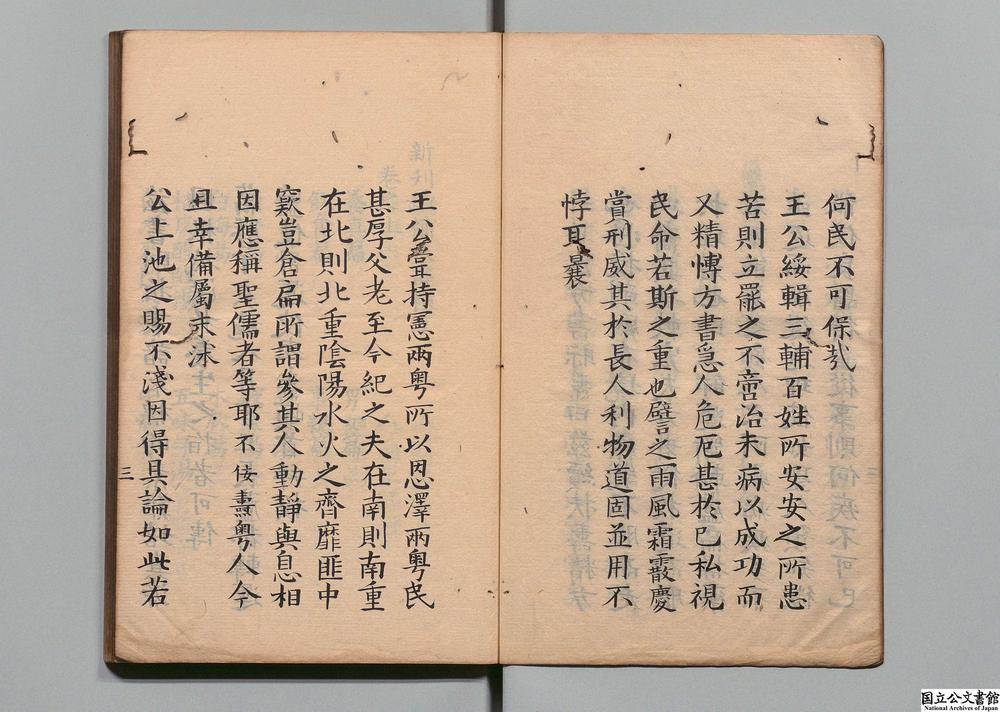 何民不可保哉
王公綏輯三輔百姓所安安之所患
苦則立罷之不啻治未病以成功而
又精慱方書急人危厄甚於已私視
民命若斯之重也譬之雨風霜霰慶
賞刑威其於長人利物道固並用不
悖耳曩
王公嘗持憲兩粵所以恩澤兩粵民
甚厚父老至今紀之夫在南則南重
在北則北重陰陽水火之齊靡匪中
窾豈倉扁所謂參其人動靜與息相
因應稱聖儒者等耶不佞燾粵人今
且幸備屬末沐
公上池之賜不淺因得具論如此若
三
国立公文書館
National Archives of Japan